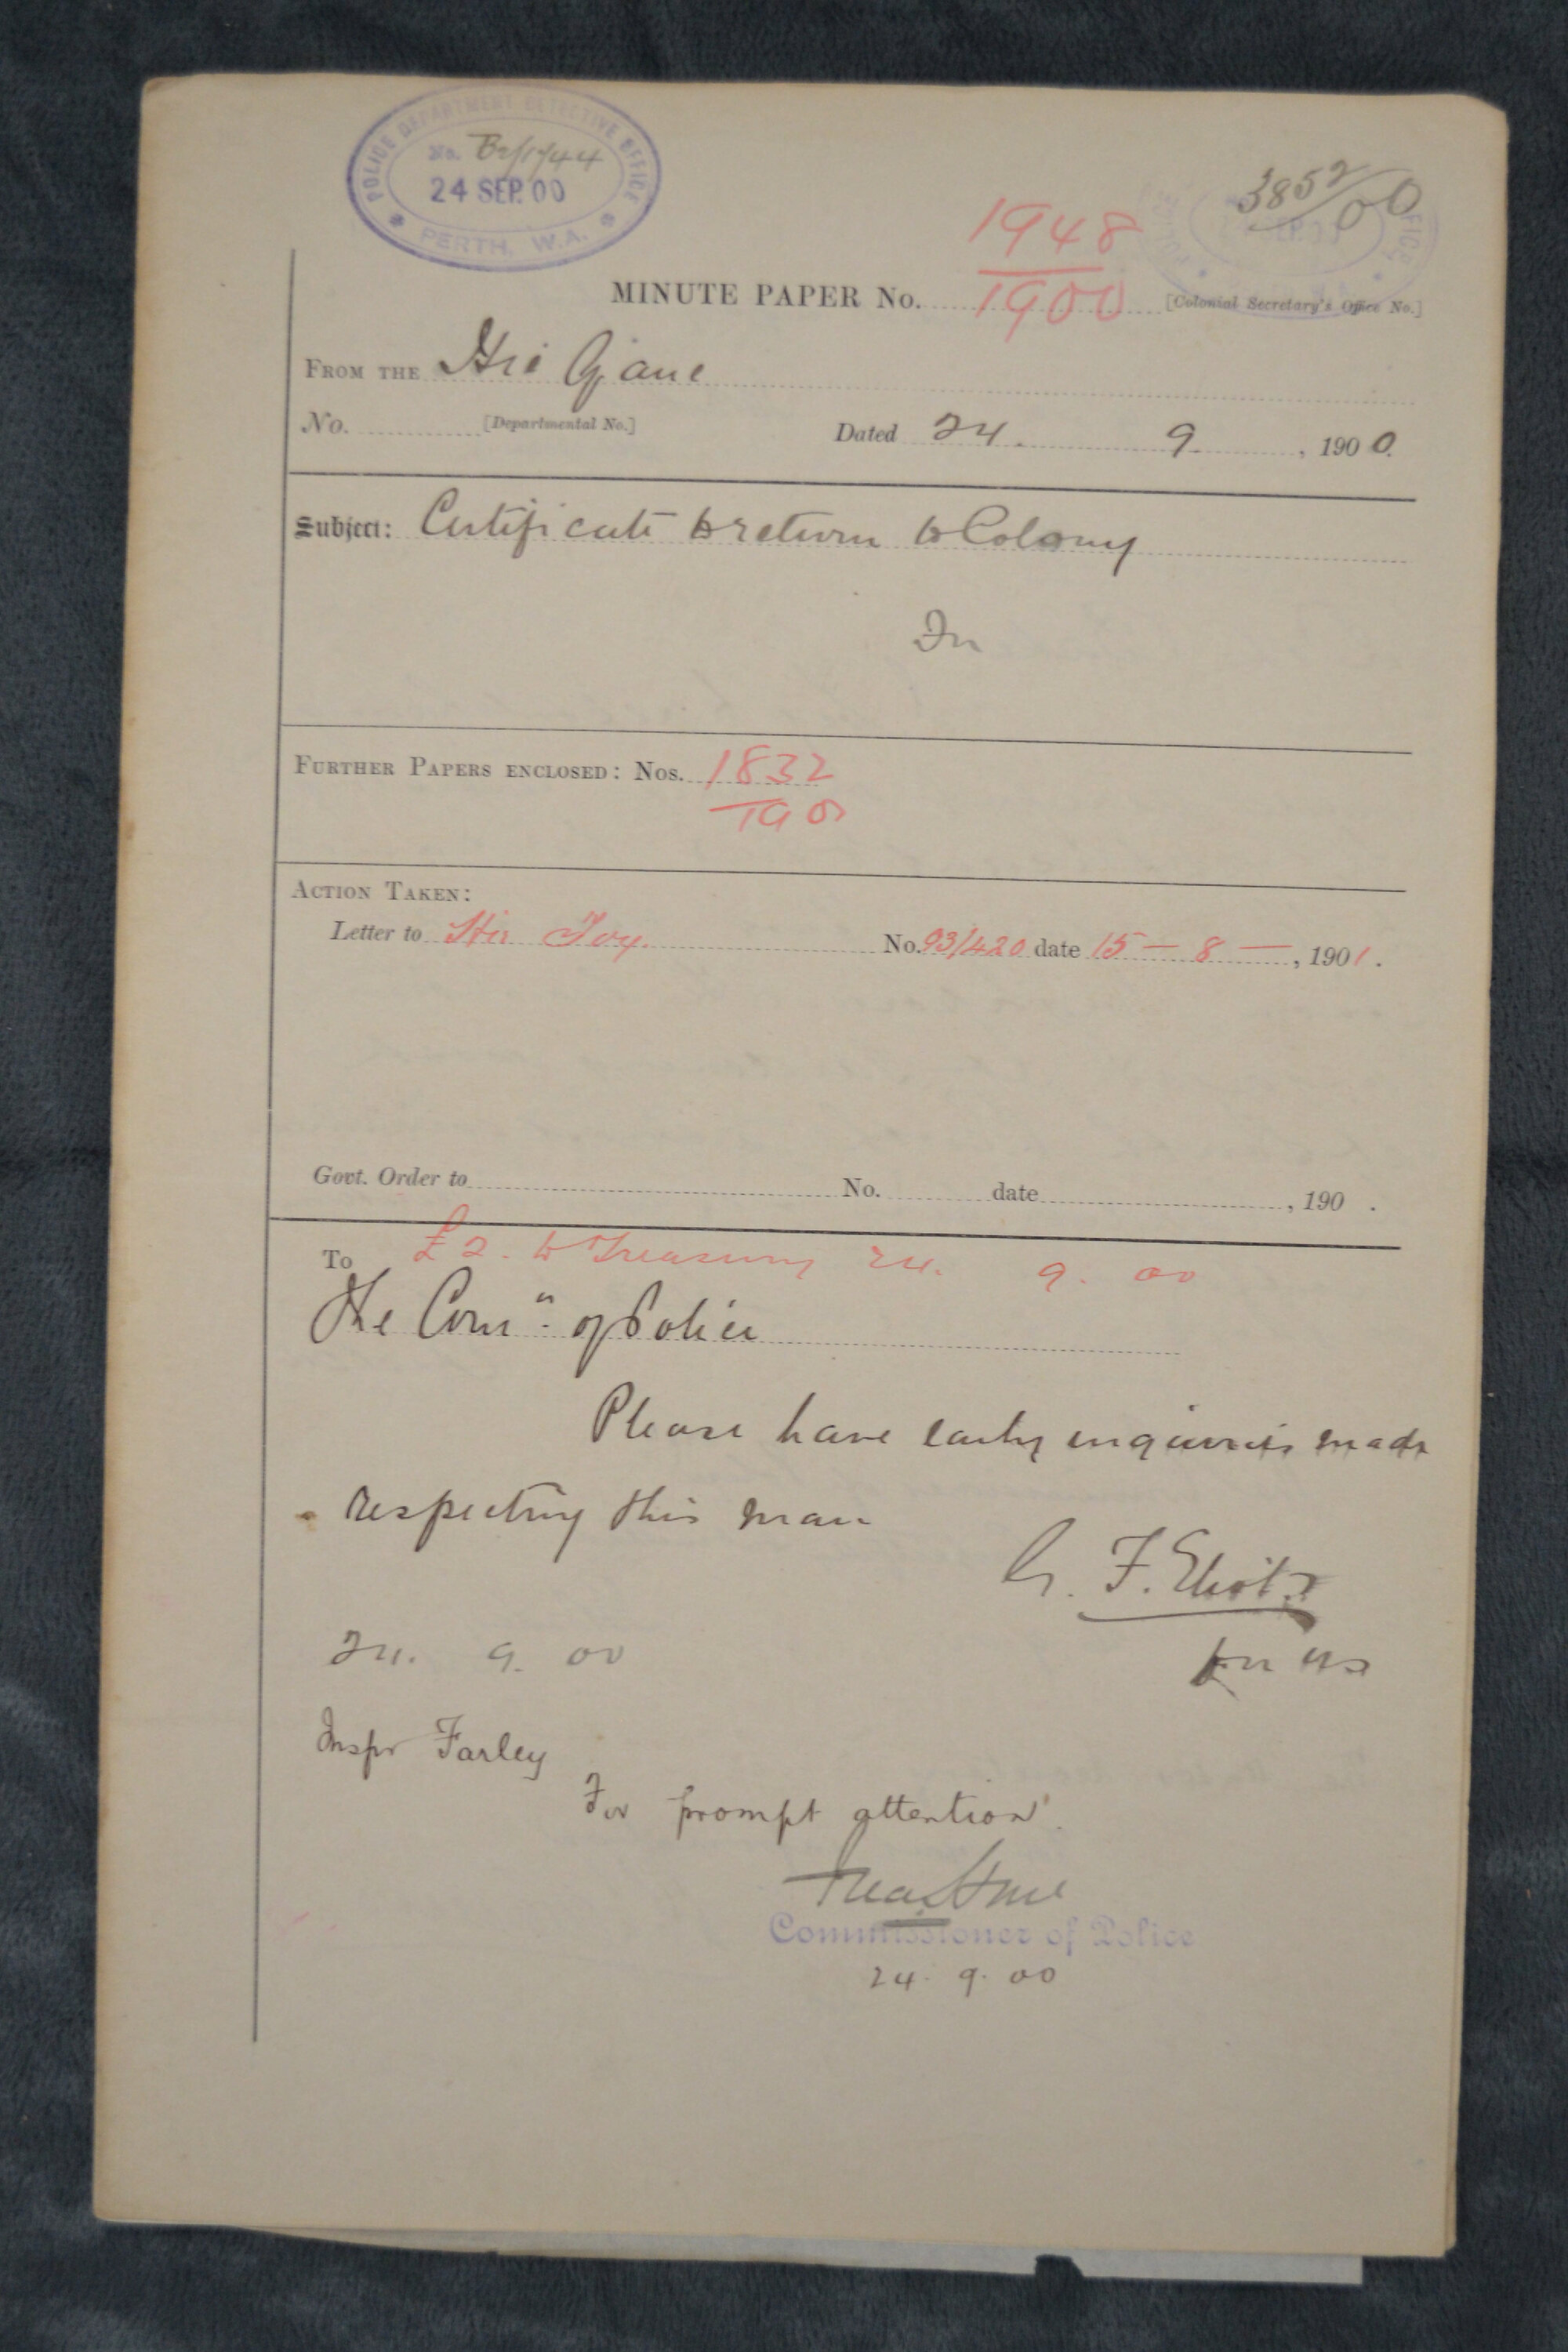 POLICE DEPARTMENT DETECTIVE OFFICE
No.
24 SEP. 00
PERTH, W.A.
3852/00
1948
MINUTE PAPER No. 1900 [Colonial Secretary's Office No.]
FROM THE
No. [Departmental No.] Dated 24. 9. , 1900.
Subject: Certificate to return to Colony
In
FURTHER PAPERS ENCLOSED: Nos. 1832
1900
ACTION TAKEN:
Letter to No. 93/420 date 15 - 8 - , 1901.
Govt. Order to No. date , 190 .
To £2. to Treasury 24. 9. 00
The Comn. of Police
Please have early inquiries made
respecting this man
G. F. Eliot
24. 9. 00
Inspr Farley
For prompt attention.
Commissioner of Police
24. 9. 00